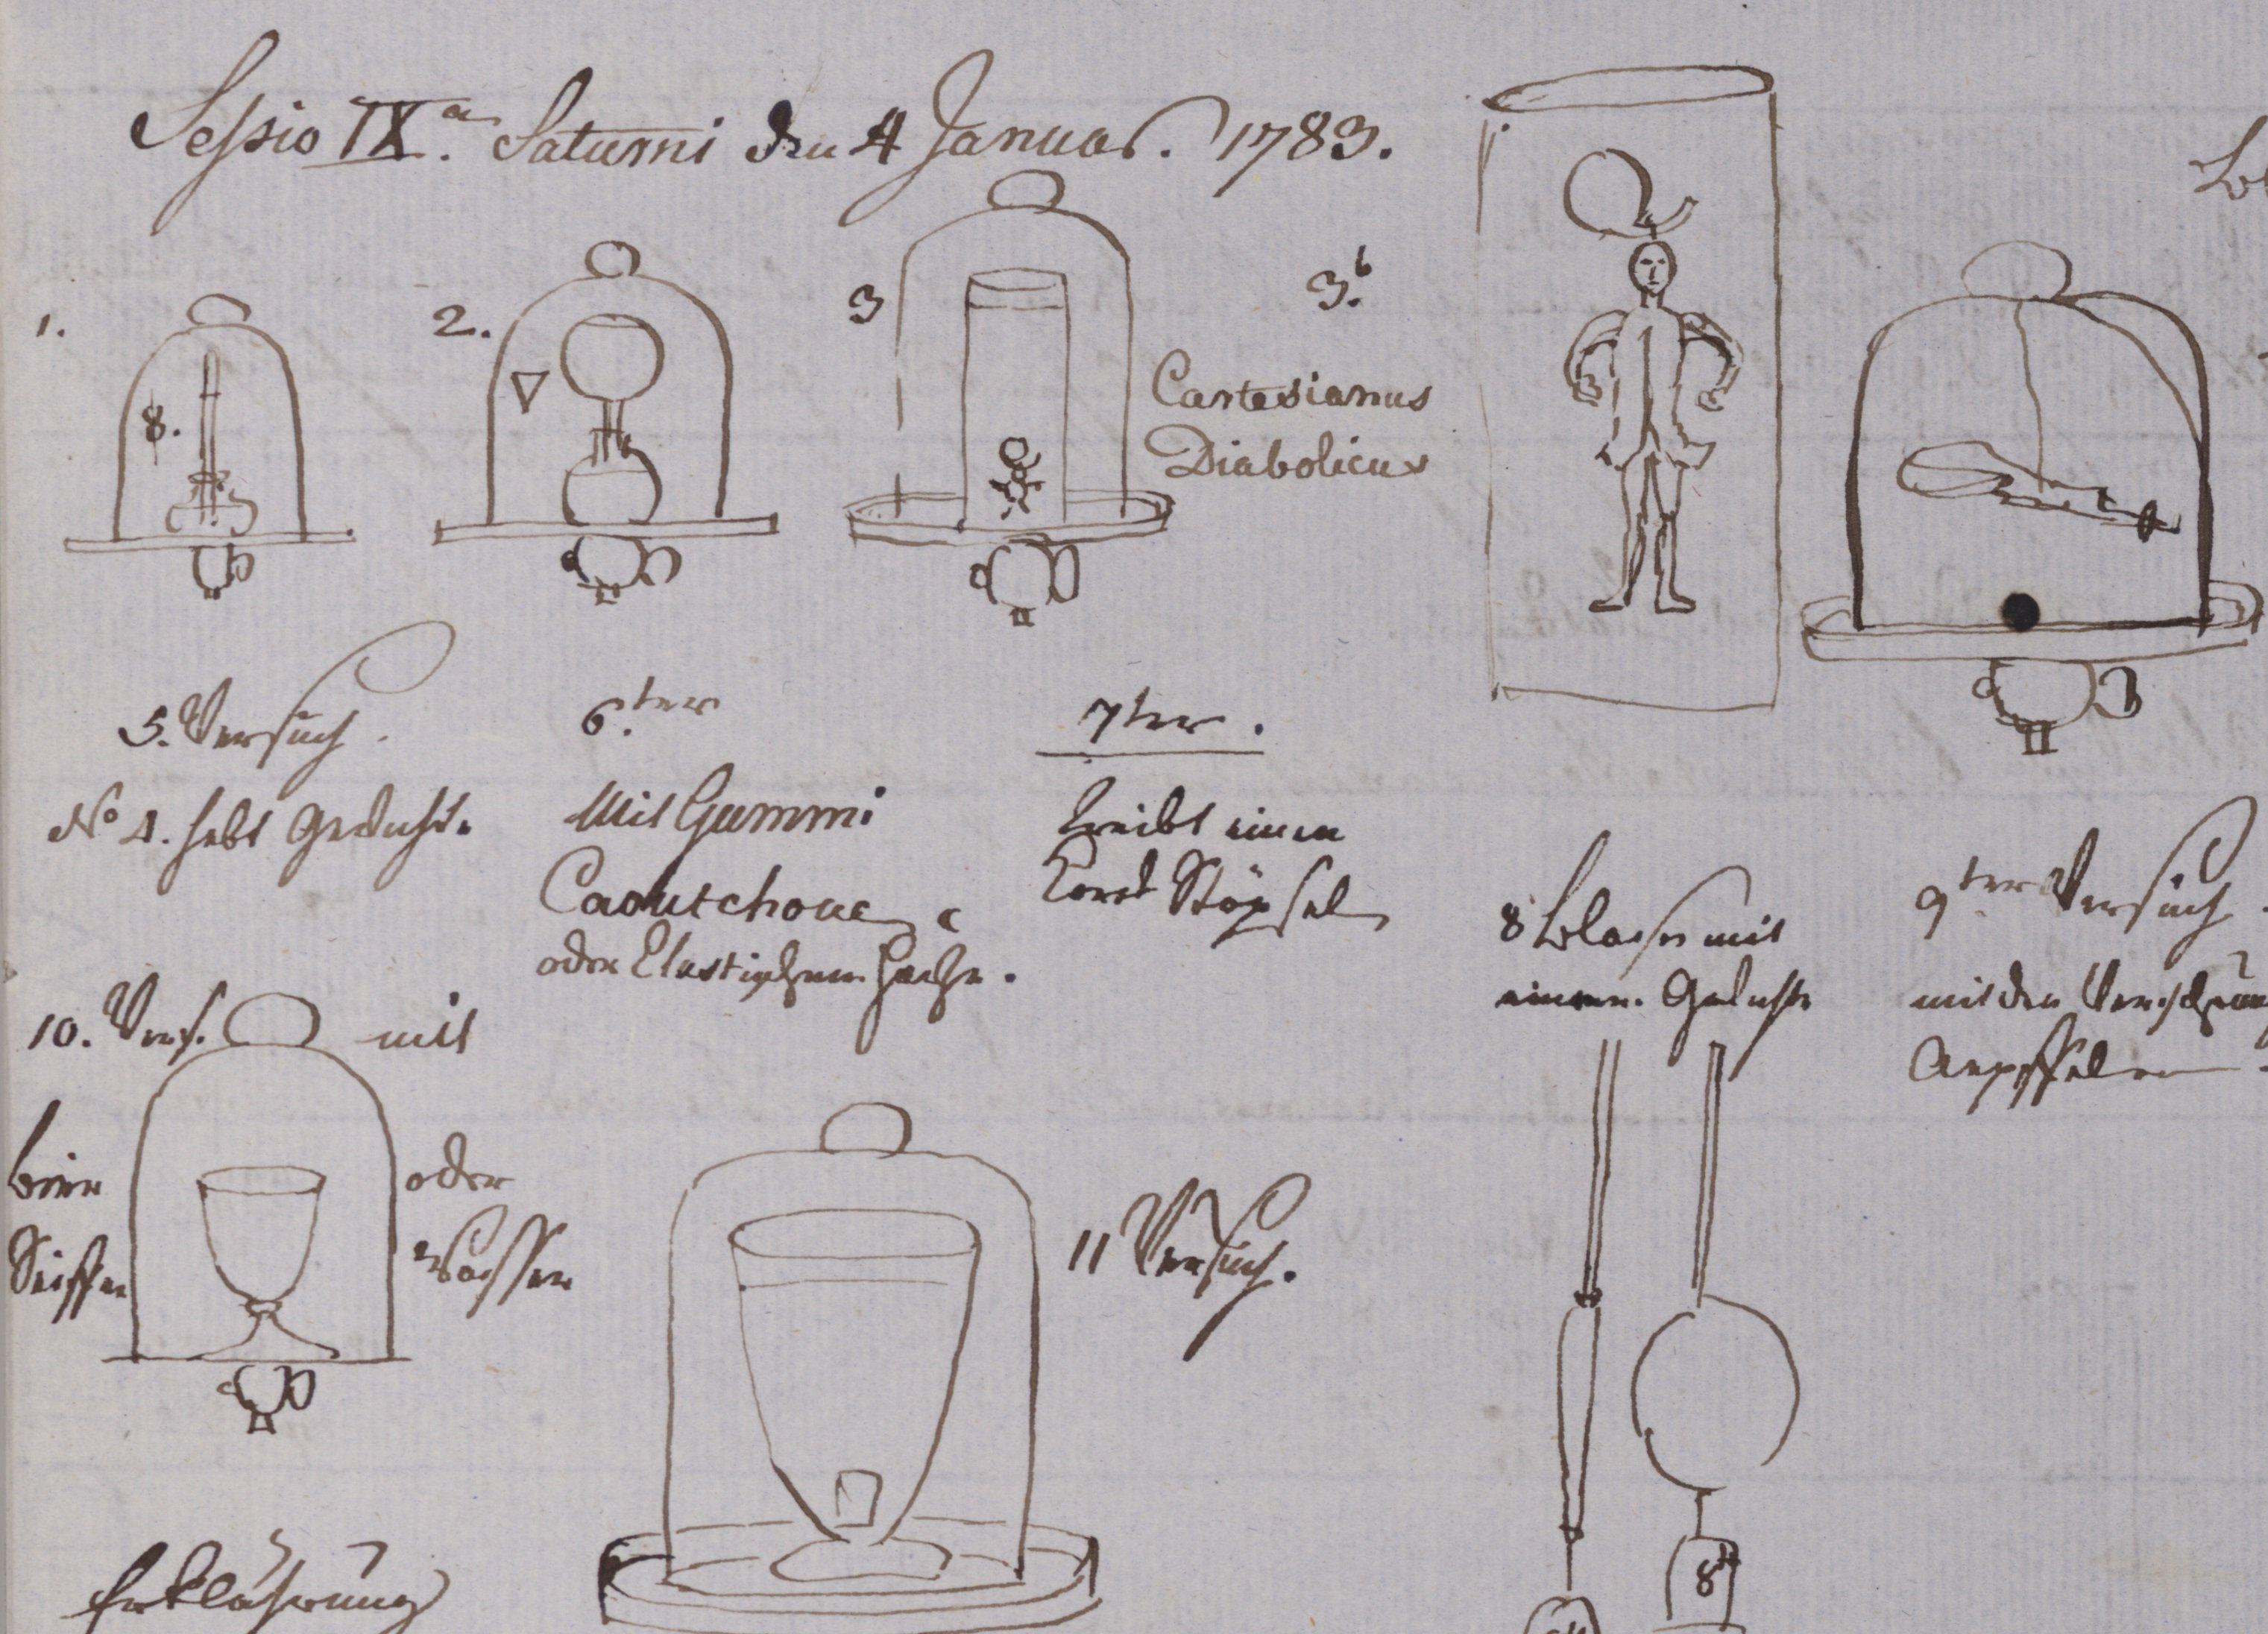 Sessio IX.a Saturni den 4 Januar. 1783.
1.
8.
2.
3
3.b
Cartesianus
Diabolicus
5. Versuch.
No 4. hebt Gewicht.
6.ter
Mit Gummi
Caoutchouc
oder Elastischem Harze.
7ter.
treibt einen
Korck Stöpsel
8 Blase mit
einem Gewicht
9ter Versuch.
mit den
Aepffeln
10. Vers. mit
Bier oder
Seiffen Wasser
11 Versuch.
8 ℔
Erklährung